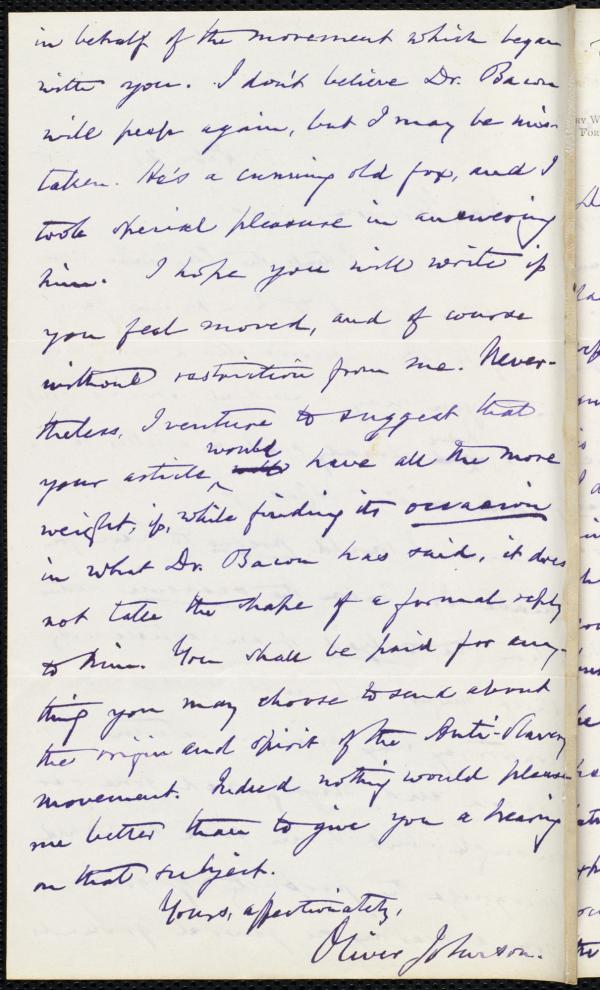 in behalf of the movement which began
with you. I don't believe Dr. Bacon
will peep again, but I may be mis-
taken. He's a cunning old fox, and I
took special pleasure in answering
him. I hope you will write if
you feel moved, and of course
without restriction from me. Never-
theless, I venture to suggest that
would
your article have all the more
weight, if, while finding its occasion
in what Dr. Bacon has said, it does
not take the shape of a formal reply
to him. You shall be paid for any-
thing you may choose to send about
the origin and spirit of the Anti-Slavery
movement. Indeed nothing would please
me better than to give you a hearing
on that subject.
Yours, affectionately,
Oliver Johnson.